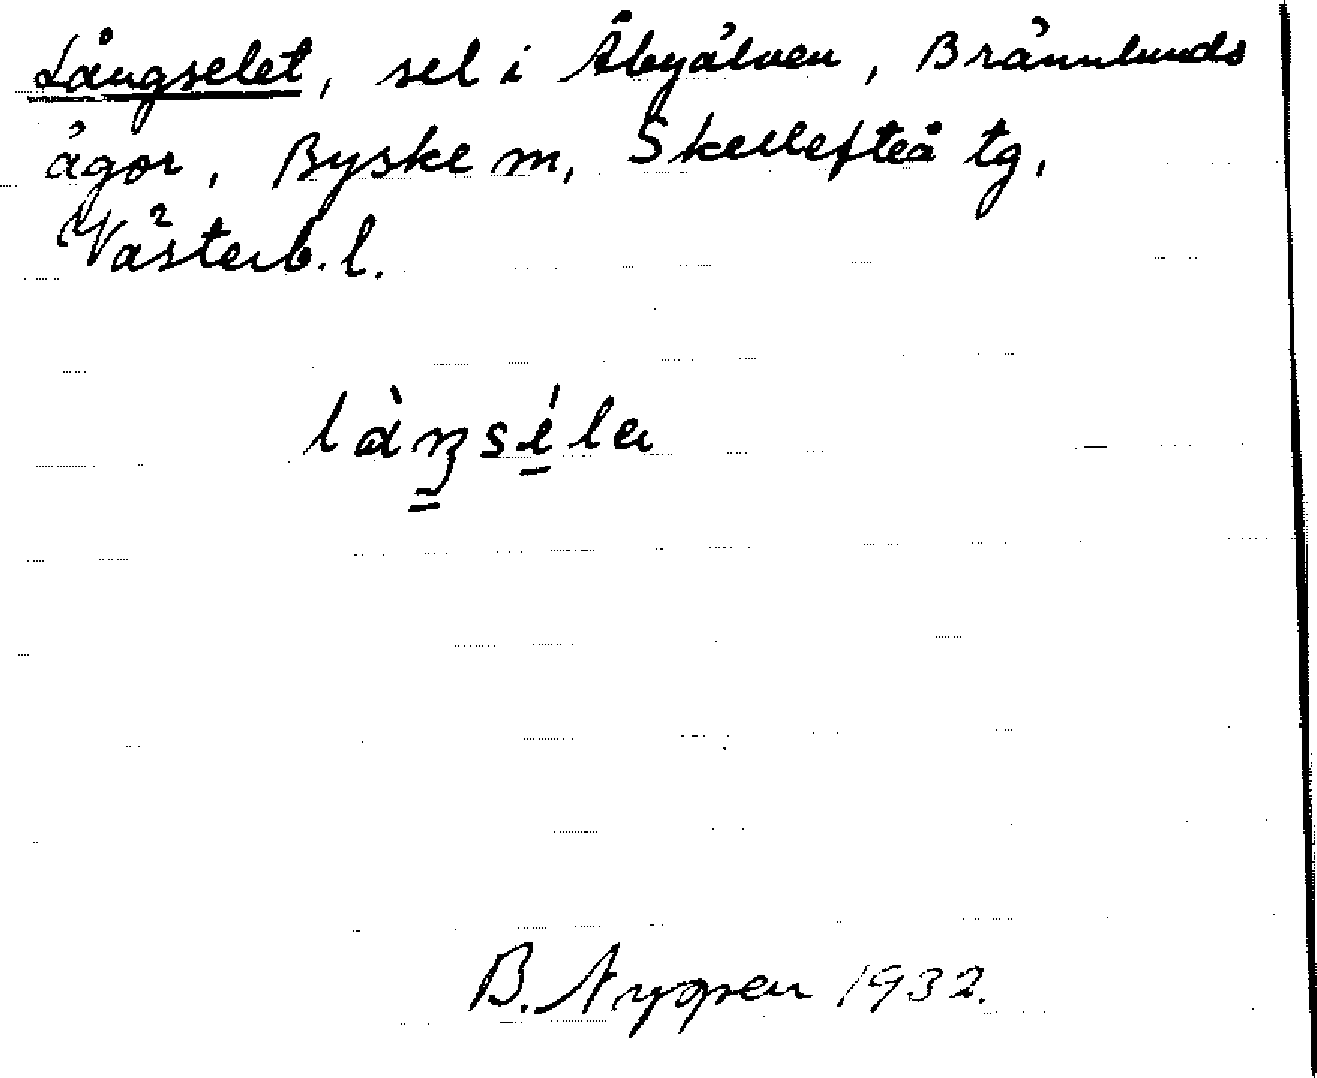 Långselet, sel i Åbyälven, Brännlunds
ägor, Byske m, Skellefteå tg,
Västerb. l.
làŋséla
B. Nygren 1932.